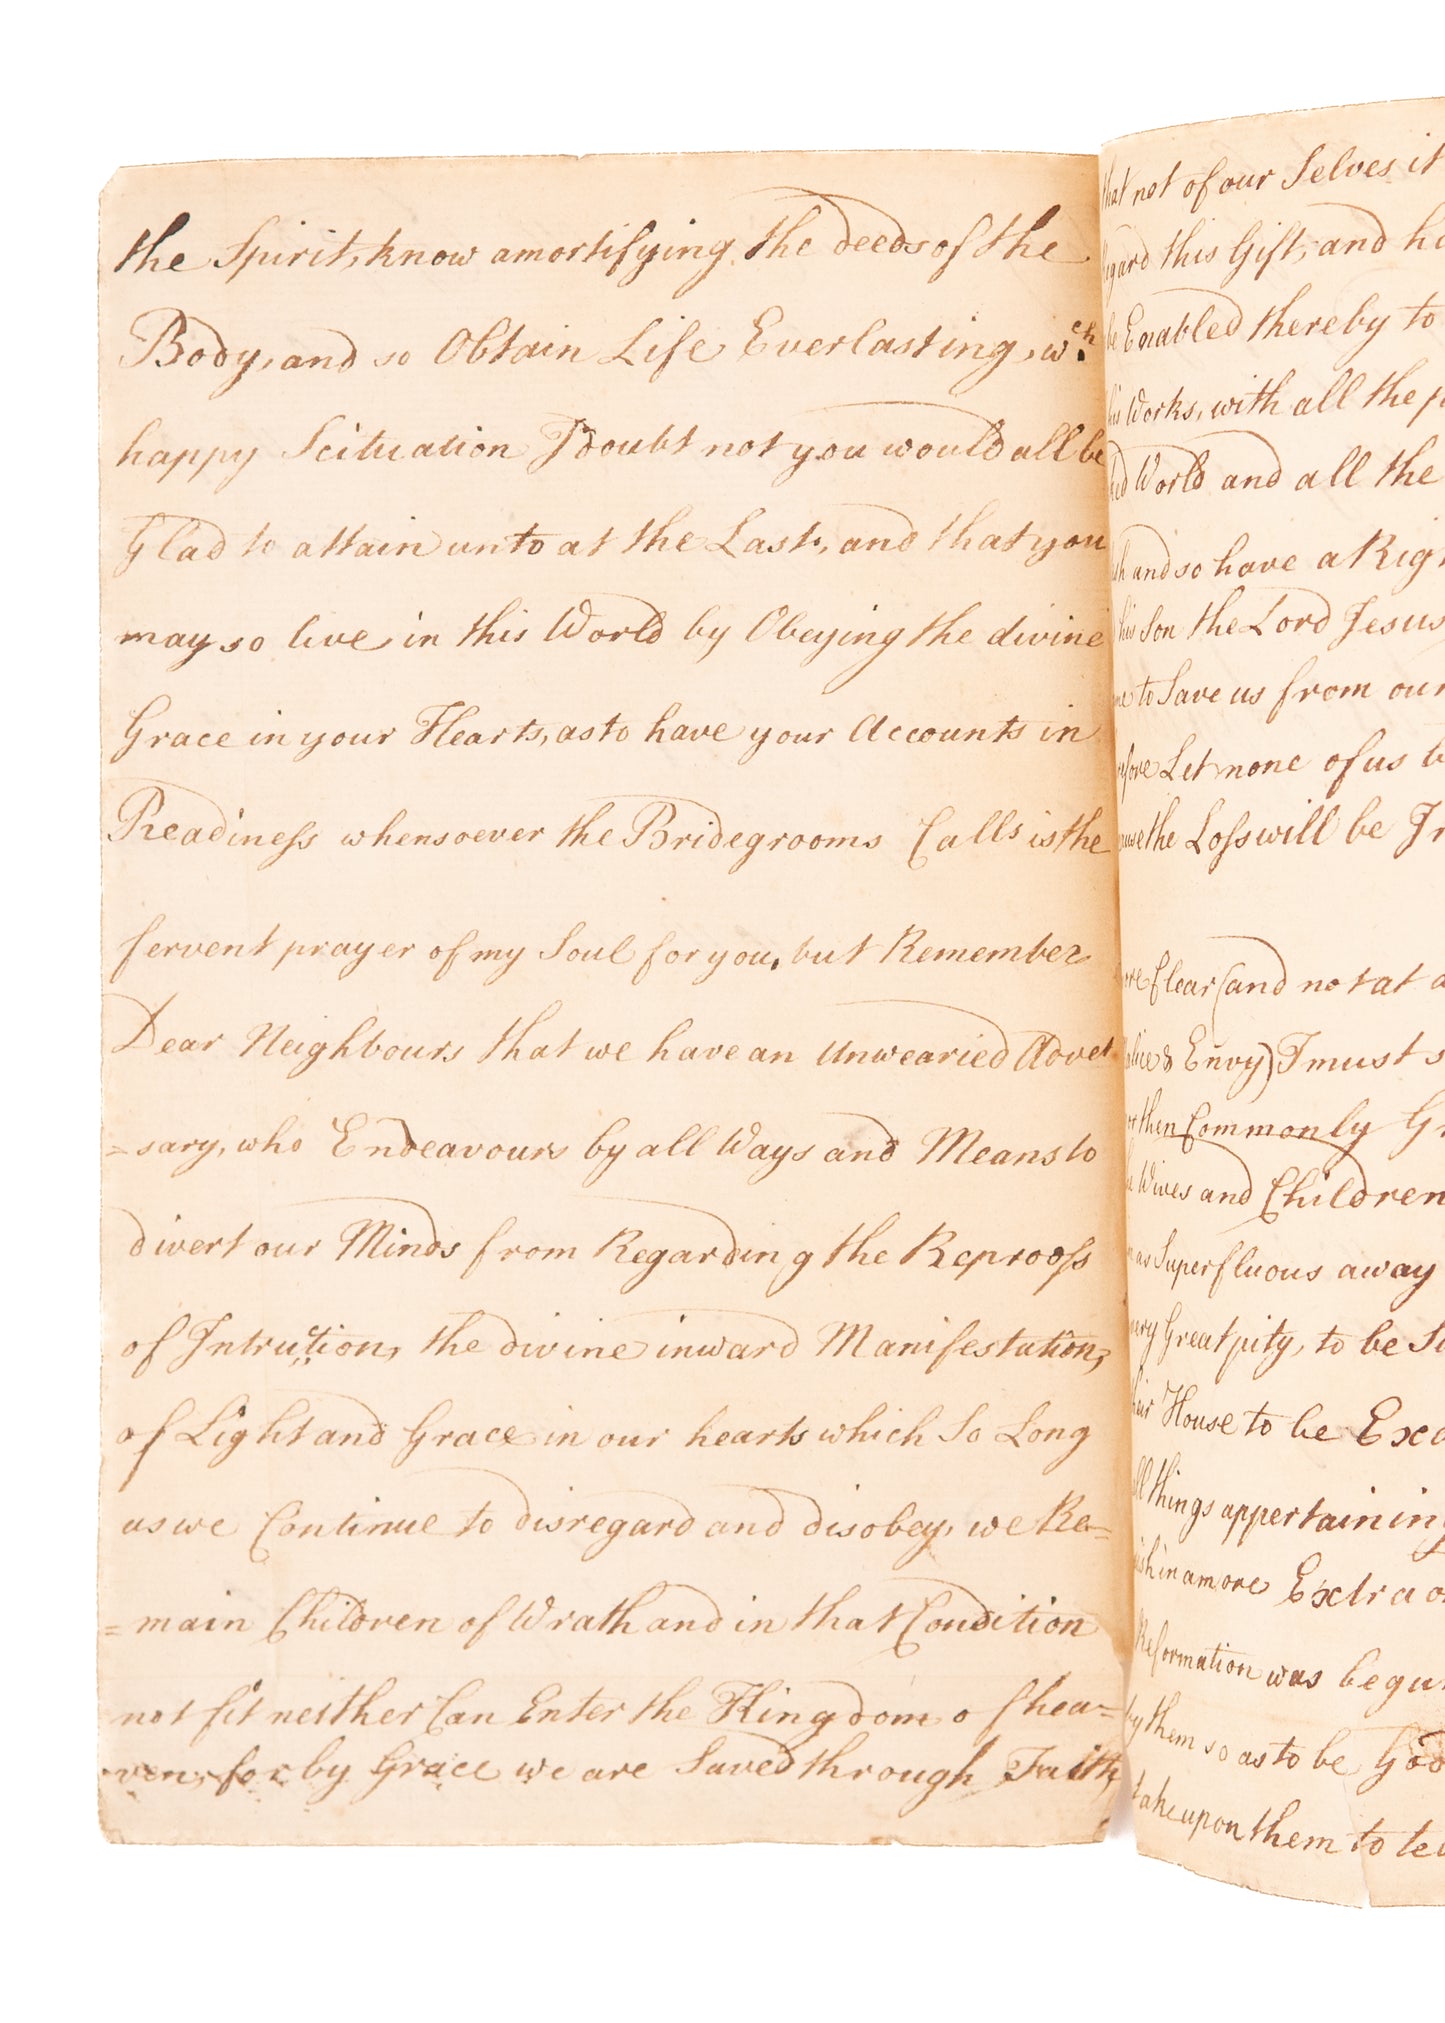 the Spirit, know amortifying the deeds of the
Body, and so Obtain Life Everlasting, wch
happy Scituation I doubt not you would all be
Glad to attain unto at the Last, and that you
may so live in this World by Obeying the divine
Grace in your Hearts, as to have your Accounts in
Readiness whensoever the Bridegrooms Calls is the
fervent prayer of my Soul for you, but Remember
Dear Neighbours that we have an Unwearied Adver
=sary, who Endeavours by all Ways and Means to
divert our Minds from Regarding the Reproofs
of Intruction, the divine inward Manifestation,
of Light and Grace in our hearts which So Long
as we Continue to disregard and disobey, we Re=
=main Children of Wrath and in that Condition
not fit neither Can Enter the Kingdom of hea=
ven, for by Grace we are Saved through Faith
that not of our Selves it
this Gift, and
be Enabled thereby to
his Works, with all the
World and all the
and so have a
his Son the Lord Jesus
to Save us from our
Let none of us
the Loss will be
and not at
& Envy) I must
then Commonly
Wives and Children
as Superfluous away
Great pity, to be
House to be
things appertaining
in a more
Reformation was
by them so as to be
take upon them to